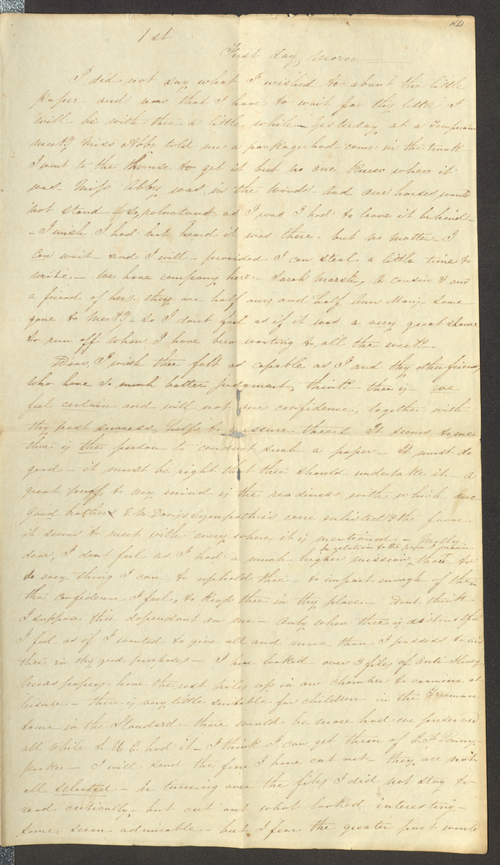 1st
First day, morn
I did not say what I wished to about the little
paper and now that I have to wait for thy letter I
will be with thee a little while – yesterday, at a Temperance
meetg Miss Abby told me a package had come in the trunk
I went to the house to get it but no one knew where it
was Miss Abby was in the woods and our horses would
not stand & so as I was I had to leave it behind
– I wish I had not heard it was there. but no matter. I
can wait and I will – provided I can steal a little time to
write – We have company here Sarah Marsh, a cousin & and
a friend of hers they are half ours and half Ann Mary some
gone to meetg – so I dont feel as if it was a very great shame
to run off when I have been wanting to, all the week
Dear, I wish thee felt as capable as I and thy other friends
who have so much better judgment, think thee is – we
feel certain and will not our confidence, together with
thy past success, help to assure thee? It seems to me
thee is the person to conduct such a paper – It must do
good – it must be right that thee should undertake it – a
great proof to my mind is the readiness with which
good brother & E M Davis's sympathies were enlisted & the favor
it seems to meet with every where it is mentioned –
dear, I dont feel as I had a much higher mission, in relation to the paper than to
do every thing I can to uphold thee – to impart enough of
the confidence I feel, to keep thee in thy place – Dont think
I suppose thee dependent on me – only when thee is
I feel as if I wanted to give all and more than I possess to aid
thee in thy good purposes – I have looked over 3 files of Anti Slavery
papers have the rest piled up in our chamber to examine at
leisure – there is very little suitable for children in the Freeman
some in the Standard there would be more had we preserved
all while L M C had it – I think I can get them of
– I will send the few I have cut out they are not
all selected – in turning over the files I did not stay to
read critically, but cut out what looked interesting –
some seem admirable – but I fear the greater part would